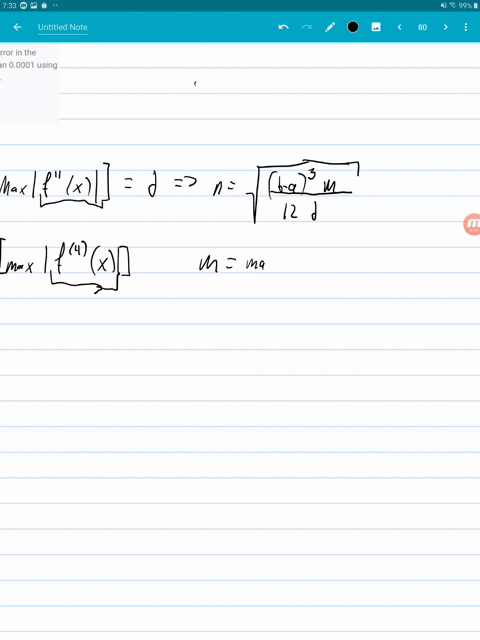 7:33 99%
Untitled Note 80
rror in the
an 0.0001 using
Max |f''(x)|] = d => n = √((b-a)³ m / 12 d)
[max |f⁽⁴⁾(x)|] m = ma